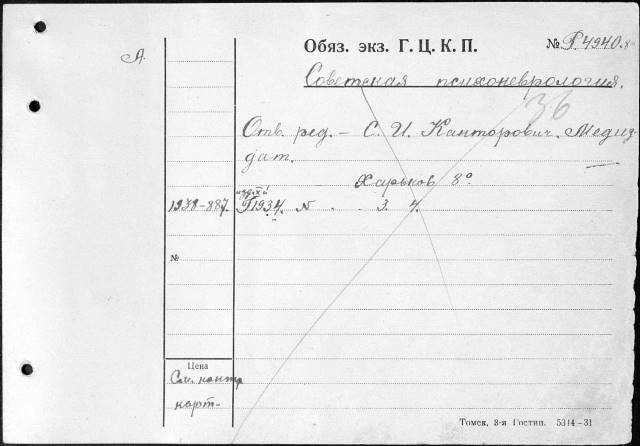 А.
Обяз. экз. Г. Ц. К. П. № Р.4940.
Советская психоневрология.
36
Отв. ред. — С. И. Канторович. Медиз
дат.
Харьков 8°
1938-887. 1934. № 3. 4.
№
Цена
См. контр
карт-
Томск, 3-я Гостип. 5344-31